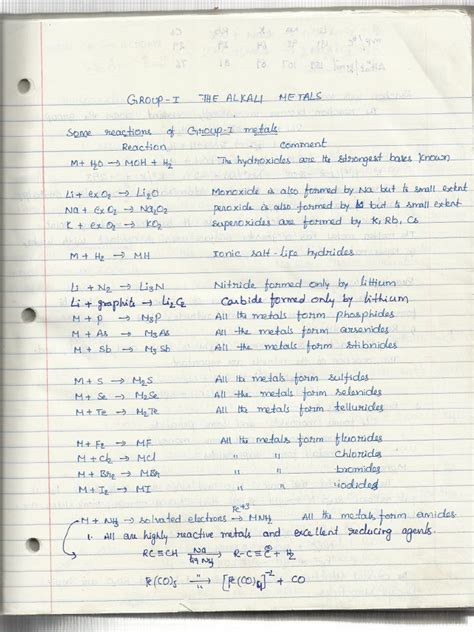 GROUP-I THE ALKALI METALS
Some reactions of Group-I metals
Reaction comment
M + H₂O → MOH + H₂ The hydroxides are the strongest bases known
Li + exO₂ → Li₂O Monoxide is also formed by Na but to small extent
Na + exO₂ → Na₂O₂ peroxide is also formed by but to small extent
K + exO₂ → KO₂ superoxides are formed by K, Rb, Cs
M + H₂ → MH Ionic salt-life hydrides
Li + N₂ → Li₃N Nitride formed only by lithium
Li + graphite → Li₂C₂ Carbide formed only by lithium
M + P → M₃P All the metals form phosphides
M + As → M₃As All the metals form arsenides
M + Sb → M₃Sb All the metals form stibnides
M + S → M₂S All the metals form sulfides
M + Se → M₂Se All the metals form selenides
M + Te → M₂Te All the metals form tellurides
M + F₂ → MF All the metals form fluorides
M + Cl₂ → MCl " " chlorides
M + Br₂ → MBr " " bromides
M + I₂ → MI " " iodides
M + NH₃ → solvated electrons →(Fe⁺³) MNH₂ All the metals form amides
1. All are highly reactive metals and excellent reducing agents.
RC≡CH →(Na, liq NH₃) R-C≡C⊖ + H₂
Fe(CO)₅ →(" ") [Fe(CO)₄]⁻² + CO